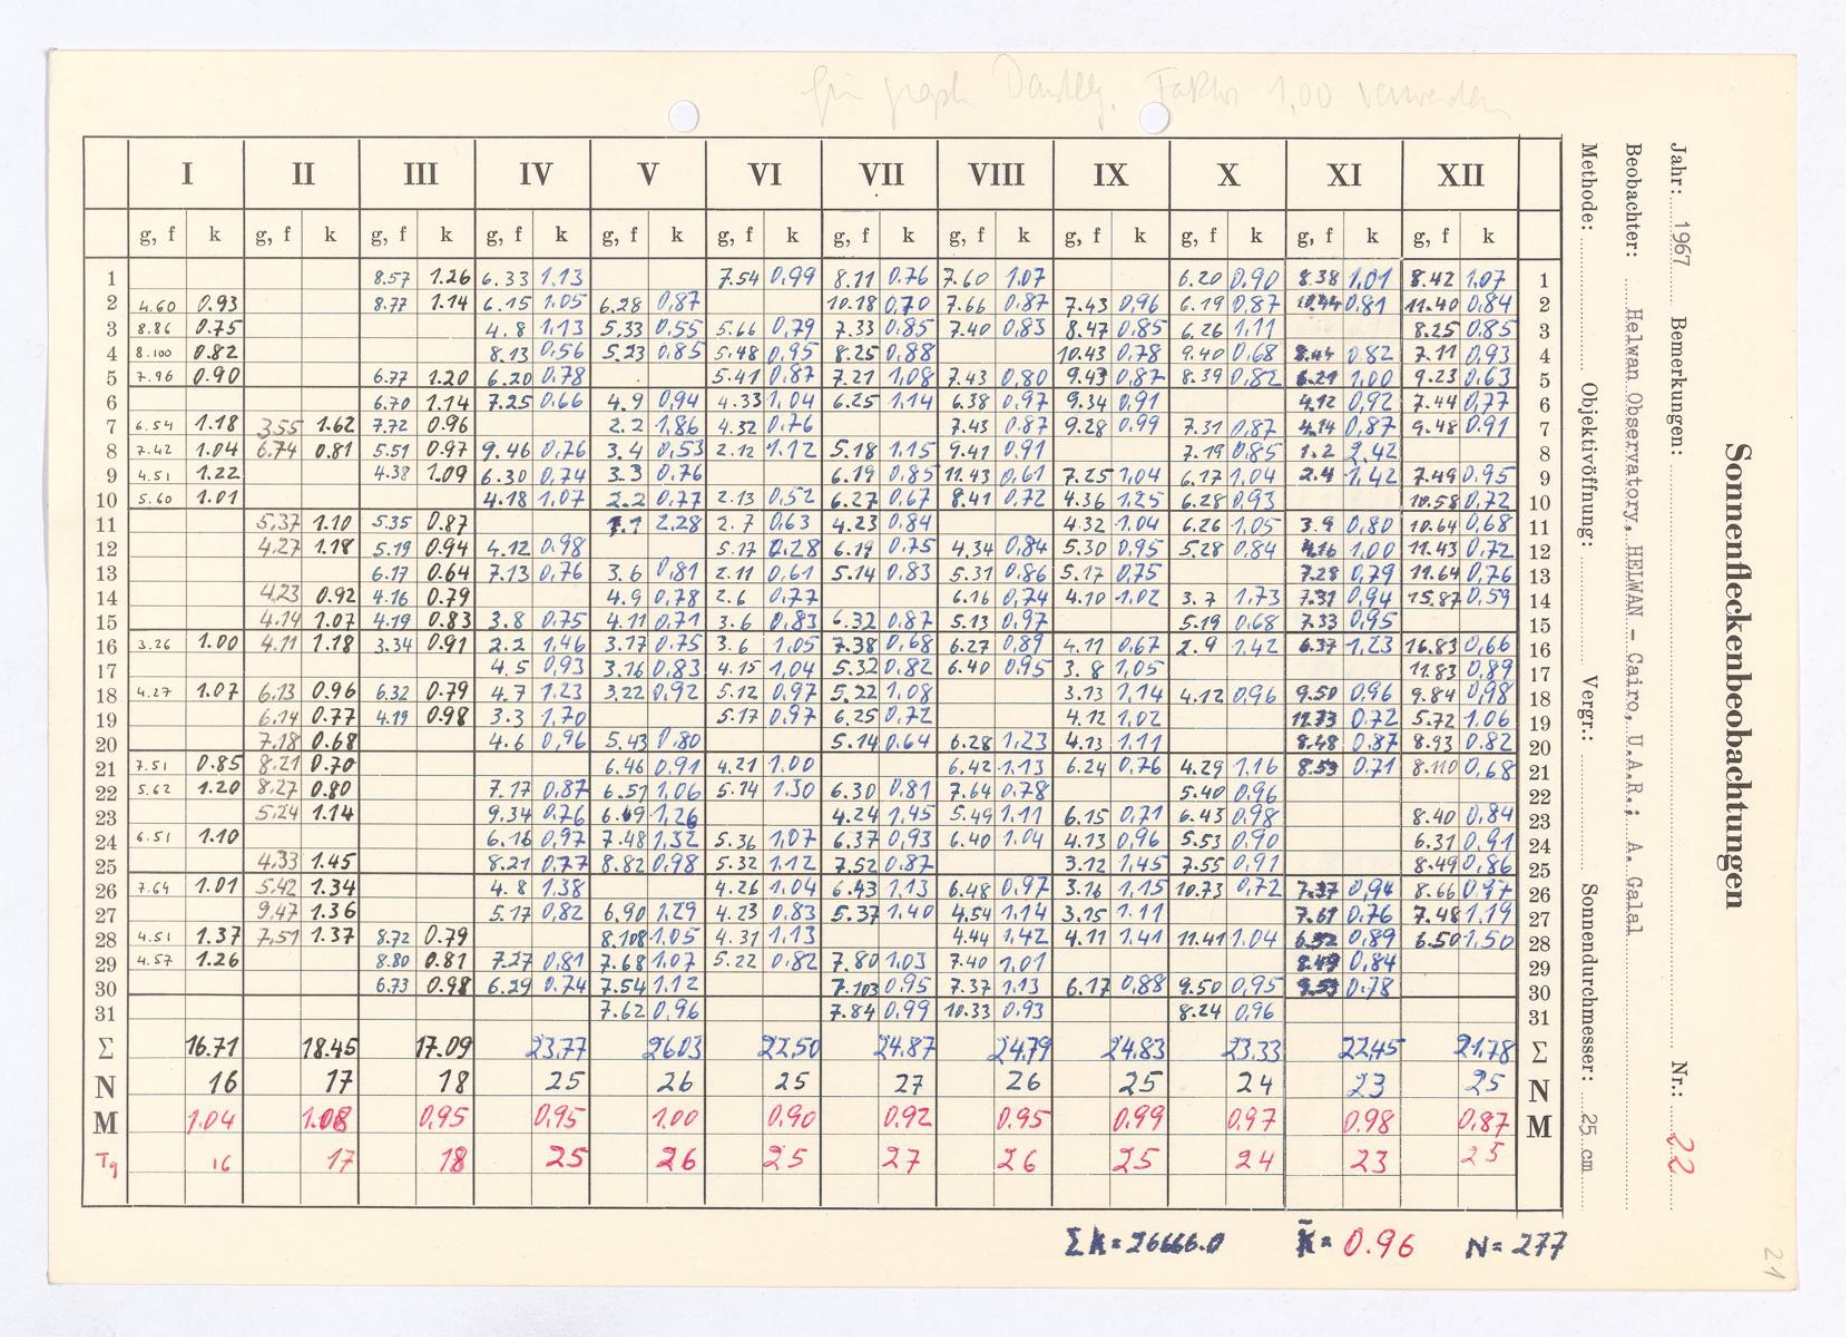 für graph. Darstellg. Faktor 1,00 verwenden
I II III IV V VI VII VIII IX X XI XII
g, f k g, f k g, f k g, f k g, f k g, f k g, f k g, f k g, f k g, f k g, f k g, f k
1 8.57 1.26 6.33 1.13 7.54 0,99 8.11 0.76 7.60 1.07 6.20 0,90 8.38 1,01 8.42 1,07 1
2 4.60 0.93 8.77 1.14 6.15 1.05 6.28 0,87 10.18 0,70 7.66 0,87 7.43 0,96 6.19 0,87 0,81 11.40 0,84 2
3 8.86 0.75 4.8 1,13 5.33 0.55 5.66 0,79 7.33 0,85 7.40 0,83 8.47 0,85 6.26 1,11 8.25 0,85 3
4 8.100 0.82 8.13 0,56 5.23 0,85 5.48 0,95 8.25 0,88 10.43 0,78 9.40 0,68 0,82 7.11 0,93 4
5 7.96 0.90 6.77 1.20 6.20 0,78 5.41 0,87 7.21 1,08 7.43 0,80 9.43 0,87 8.39 0,82 6.21 1,00 9.23 0,63 5
6 6.70 1.14 7.25 0.66 4.9 0,94 4.33 1,04 6.25 1,14 6.38 0,97 9.34 0,91 4.12 0,92 7.44 0,77 6
7 6.54 1.18 3.55 1.62 7.72 0.96 2.2 1,86 4.32 0,76 7.43 0.87 9.28 0,99 7.31 0,87 4.14 0,87 9.48 0.91 7
8 7.42 1.04 6.74 0.81 5.51 0.97 9.46 0,76 3.4 0,53 2.12 1.12 5.18 1,15 9.41 0,91 7.19 0,85 1.2 2,42 8
9 4.51 1.22 4.38 1.09 6.30 0,74 3.3 0,76 6.19 0,85 11.43 0,61 7.25 1,04 6.17 1,04 2.4 1,42 7.49 0.95 9
10 5.60 1.01 4.18 1,07 2.2 0,77 2.13 0,52 6.27 0,67 8.41 0,72 4.36 1,25 6.28 0,93 10.58 0,72 10
11 5.37 1.10 5.35 0.87 1.1 2,28 2.7 0,63 4.23 0,84 4.32 1.04 6.26 1,05 3.9 0,80 10.64 0,68 11
12 4.27 1.18 5.19 0.94 4.12 0,98 5.17 0.28 6.19 0.75 4.34 0,84 5.30 0,95 5.28 0,84 4.16 1,00 11.43 0,72 12
13 6.17 0.64 7.13 0,76 3.6 0,81 2.11 0,61 5.14 0,83 5.31 0,86 5.17 0,75 7.28 0,79 11.64 0,76 13
14 4.23 0.92 4.16 0.79 4.9 0,78 2.6 0,77 6.16 0,74 4.10 1,02 3.7 1,73 7.31 0,94 15.87 0,59 14
15 4.14 1.07 4.19 0.83 3.8 0,75 4.11 0,71 3.6 0,83 6.32 0,87 5.13 0,97 5.19 0,68 7.33 0,95 15
16 3.26 1.00 4.11 1.18 3.34 0.91 2.2 1,46 3.17 0,75 3.6 1,05 7.38 0,68 6.27 0,89 4.11 0,67 2.9 1,42 6.37 1,23 16.83 0,66 16
17 4.5 0,93 3.16 0,83 4.15 1,04 5.32 0,82 6.40 0,95 3.8 1,05 11.83 0,89 17
18 4.27 1.07 6.13 0.96 6.32 0.79 4.7 1.23 3.22 0,92 5.12 0,97 5.22 1,08 3.13 1,14 4.12 0,96 9.50 0,96 9.84 0,98 18
19 6.14 0.77 4.19 0.98 3.3 1,70 5.17 0,97 6.25 0,72 4.12 1,02 11.73 0,72 5.72 1.06 19
20 7.18 0.68 4.6 0,96 5.43 0,80 5.14 0.64 6.28 1,23 4.13 1.11 8.48 0,87 8.93 0.82 20
21 7.51 0.85 8.21 0.70 6.46 0,91 4.21 1.00 6.42 1.13 6.24 0,76 4.29 1,16 8.53 0.71 8.110 0,68 21
22 5.62 1.20 8.27 0.80 7.17 0,87 6.51 1,06 5.14 1.30 6.30 0,81 7.64 0.78 5.40 0,96 22
23 5.24 1.14 9.34 0,76 6.69 1,26 4.24 1,45 5.49 1.11 6.15 0,71 6.43 0,98 8.40 0,84 23
24 6.51 1.10 6.16 0,97 7.48 1,32 5.36 1,07 6.37 0,93 6.40 1.04 4.13 0,96 5.53 0,90 6.31 0,91 24
25 4.33 1.45 8.21 0,77 8.82 0,98 5.32 1.12 7.52 0.87 3.12 1,45 7.55 0,91 8.49 0,86 25
26 7.64 1.01 5.42 1.34 4.8 1.38 4.26 1,04 6.43 1,13 6.48 0,97 3.16 1,15 10.73 0,72 7.37 0,94 8.66 0,97 26
27 9.47 1.36 5.17 0,82 6.90 1,29 4.23 0,83 5.37 1,40 4.54 1,14 3.15 1.11 7.61 0,76 7.48 1,19 27
28 4.51 1.37 7.51 1.37 8.72 0.79 8.108 1,05 4.31 1,13 4.44 1,42 4.11 1,41 11.41 1,04 6.52 0,89 6.50 1,50 28
29 4.57 1.26 8.80 0.81 7.27 0,81 7.68 1,07 5.22 0.82 7.80 1,03 7.40 1,01 8.49 0,84 29
30 6.73 0.98 6.29 0.74 7.54 1.12 7.103 0,95 7.37 1.13 6.17 0,88 9.50 0,95 9.53 0.78 30
31 7.62 0,96 7.84 0,99 10.33 0.93 8.24 0,96 31
Σ 16.71 18.45 17.09 23,77 26.03 22,50 24.87 24.79 24.83 23.33 22,45 21.78 Σ
N 16 17 18 25 26 25 27 26 25 24 23 25 N
M 1.04 1.08 0,95 0,95 1.00 0,90 0.92 0.95 0.99 0.97 0.98 0,87 M
Tg 16 17 18 25 26 25 27 26 25 24 23 25
Σk = 26666.0 k̄ = 0.96 N = 277
Sonnenfleckenbeobachtungen
Jahr: 1967 Bemerkungen: Nr.: 22
Beobachter: Helwan Observatory, HELWAN - Cairo, U.A.R.; A. Galal
Methode: Objektivöffnung: Vergr.: Sonnendurchmesser: 25 cm
21